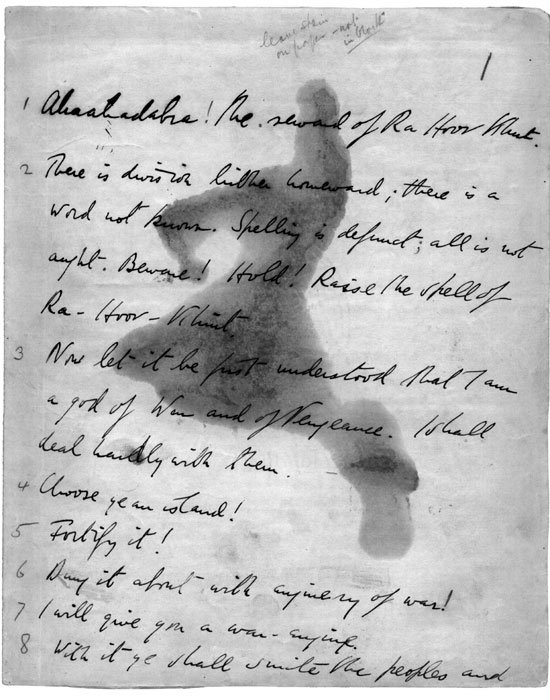 leave stain
on paper - not
in block
1
1 Abrahadabra! the reward of Ra Hoor Khut.
2 There is division hither homeward; there is a
word not known. Spelling is defunct; all is not
aught. Beware! Hold! Raise the spell of
Ra-Hoor-Khuit
3 Now let it be first understood that I am
a god of War and of Vengeance. I shall
deal hardly with them.
4 Choose ye an island!
5 Fortify it!
6 Dung it about with enginery of war!
7 I will give you a war-engine.
8 With it ye shall smite the peoples and